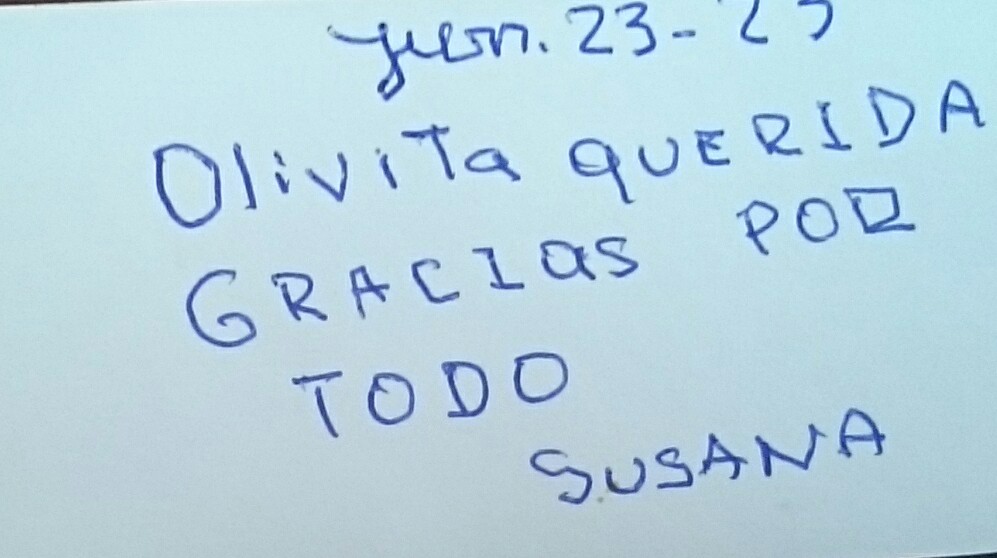 23-
Olivita QUERIDA
GRACIAS POR
TODO
SUSANA